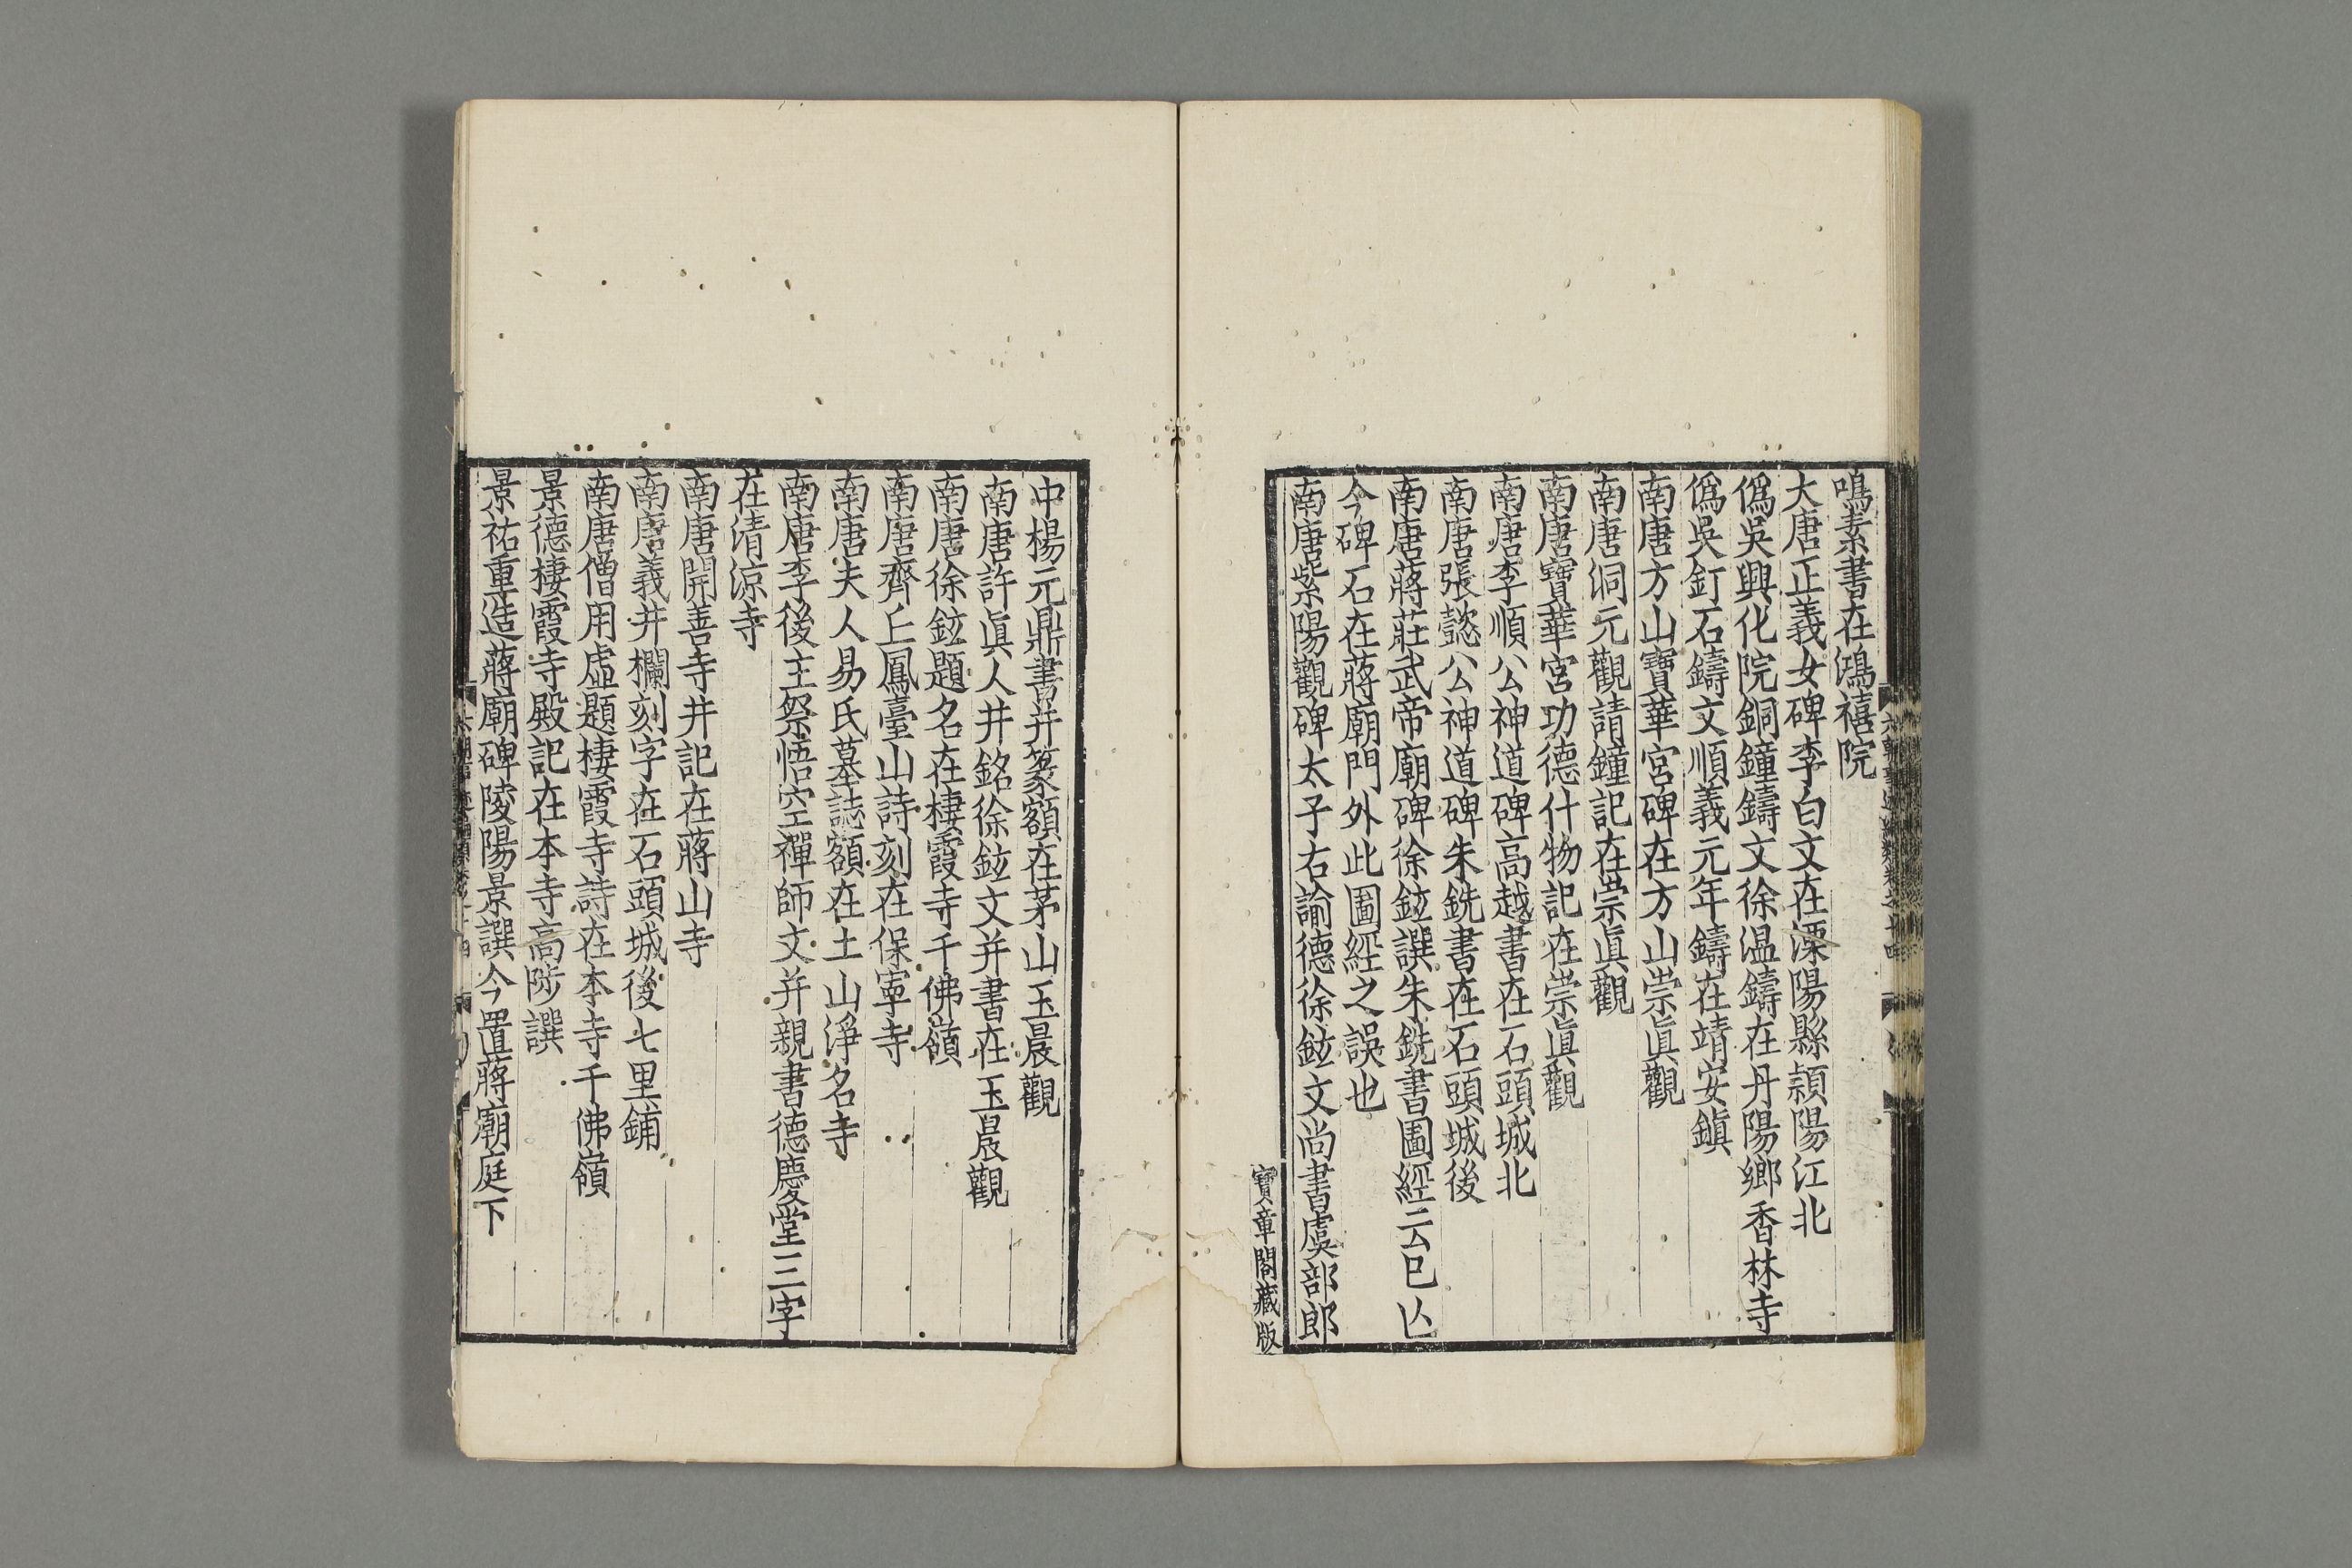 鳴素書在鴻禧院
大唐正義女碑李白文在溧陽縣頴陽江北
僞吳興化院銅鐘鑄文徐温鑄在丹陽鄉香林寺
僞吳釘石鑄文順義元年鑄在靖安鎭
南唐方山寶華宮碑在方山崇眞觀
南唐洞元觀請鐘記在崇眞觀
南唐寶華宮功德什物記在崇眞觀
南唐李順公神道碑高越書在石頭城北
南唐張懿公神道碑朱銑書在石頭城後
南唐蔣莊武帝廟碑徐鉉譔朱銑書圖經云巳亾
今碑石在蔣廟門外此圖經之誤也
南唐紫陽觀碑太子右諭德徐鉉文尚書虞部郎
寶章閣藏版
中楊元鼎書并篆額在茅山玉晨觀
南唐許眞人井銘徐鉉文并書在玉晨觀
南唐徐鉉題名在棲霞寺千佛嶺
南唐齊丘鳳臺山詩刻在保寧寺
南唐夫人易氏墓誌額在土山淨名寺
南唐李後主祭悟空禪師文并親書德慶堂三字
在清涼寺
南唐開善寺井記在蔣山寺
南唐義井欄刻字在石頭城後七里鋪
南唐僧用虛題棲霞寺詩在本寺千佛嶺
景德棲霞寺殿記在本寺高陟譔
景祐重造蔣廟碑陵陽景譔今置蔣廟庭下